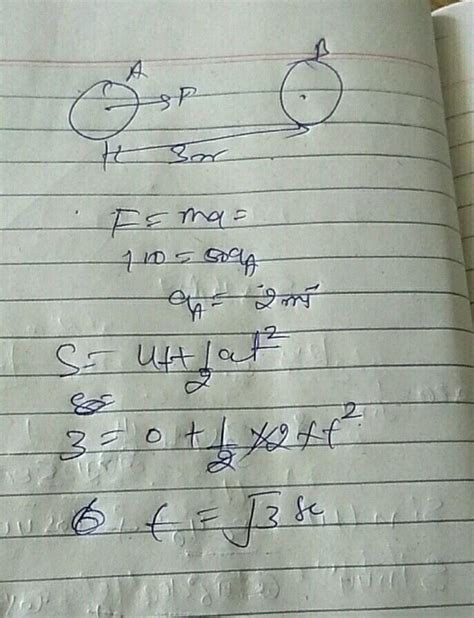 A
B
F
3m
F = ma =
100 = 50a_A
a_A = 2 m/s²
S = ut + 1/2 at²
3 = 0 + 1/2 × 2 × t²
t = √3 sec